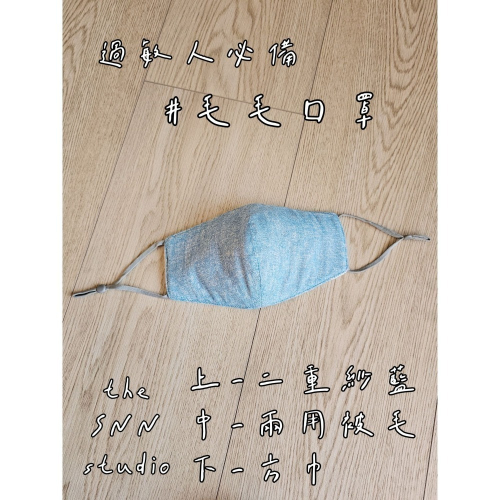 過敏人必備
#毛毛口罩
the 上-二重紗藍
SNN 中-兩用被毛
studio 下-方巾